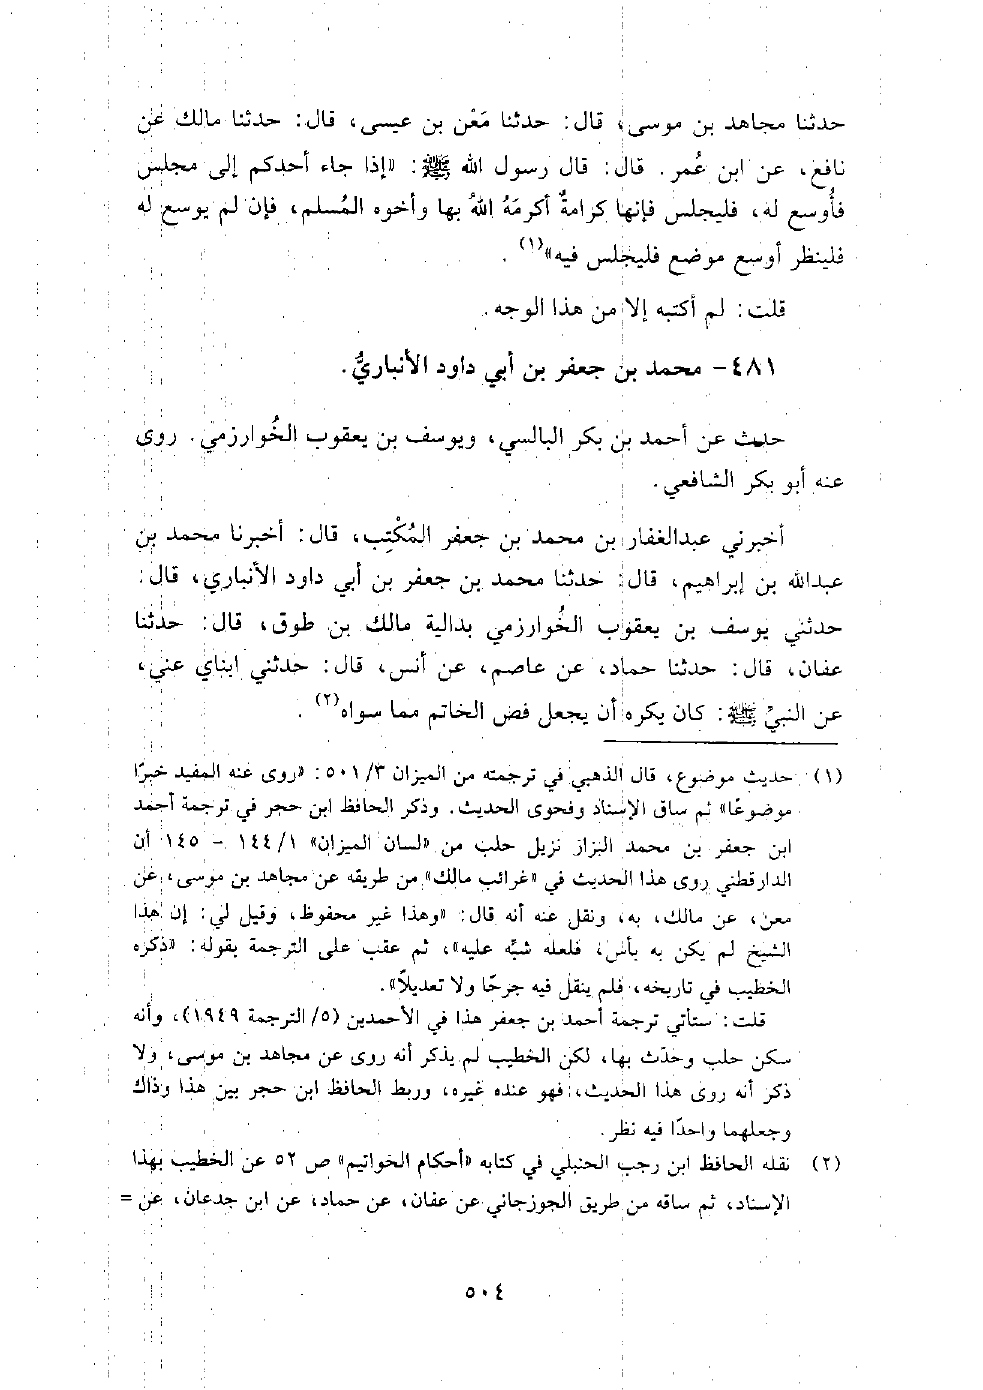 حدثنا مجاهد بن موسى، قال: حدثنا مَعْن بن عيسى، قال: حدثنا مالك عن
نافع، عن ابن عُمر. قال: قال رسول الله ﷺ: «إذا جاء أحدكم إلى مجلس
فأُوسع له، فليجلس فإنها كرامةٌ أكرمَهُ اللهُ بها وأخوه المُسلم، فإن لم يوسع له
فلينظر أوسع موضع فليجلس فيه»(١).
قلت: لم أكتبه إلا من هذا الوجه.
٤٨١- محمد بن جعفر بن أبي داود الأنباريُّ.
حدث عن أحمد بن بكر البالسي، ويوسف بن يعقوب الخُوارزمي. روى
عنه أبو بكر الشافعي.
أخبرني عبدالغفار بن محمد بن جعفر المُكْتِب، قال: أخبرنا محمد بن
عبدالله بن إبراهيم، قال: حدثنا محمد بن جعفر بن أبي داود الأنباري، قال:
حدثني يوسف بن يعقوب الخُوارزمي بدالية مالك بن طوق، قال: حدثنا
عفان، قال: حدثنا حماد، عن عاصم، عن أنس، قال: حدثني ابناي عني،
عن النبيّ ﷺ: كان يكره أن يجعل فص الخاتم مما سواه(٢).
(١) حديث موضوع، قال الذهبي في ترجمته من الميزان ٣/ ٥٠١: «روى عنه المفيد خبرًا
موضوعًا» ثم ساق الإسناد وفحوى الحديث. وذكر الحافظ ابن حجر في ترجمة أحمد
ابن جعفر بن محمد البزاز نزيل حلب من «لسان الميزان» ١/ ١٤٤ - ١٤٥ أن
الدارقطني روى هذا الحديث في «غرائب مالك» من طريقه عن مجاهد بن موسى، عن
معن، عن مالك، به، ونقل عنه أنه قال: «وهذا غير محفوظ، وقيل لي: إن هذا
الشيخ لم يكن به بأس، فلعله شبِّه عليه»، ثم عقب على الترجمة بقوله: «ذكره
الخطيب في تاريخه، فلم ينقل فيه جرحًا ولا تعديلاً».
قلت: ستأتي ترجمة أحمد بن جعفر هذا في الأحمدين (٥/ الترجمة ١٩٤٩)، وأنه
سكن حلب وحدّث بها، لكن الخطيب لم يذكر أنه روى عن مجاهد بن موسى، ولا
ذكر أنه روى هذا الحديث، فهو عنده غيره، وربط الحافظ ابن حجر بين هذا وذاك
وجعلهما واحدًا فيه نظر.
(٢) نقله الحافظ ابن رجب الحنبلي في كتابه «أحكام الخواتيم» ص ٥٢ عن الخطيب بهذا
الإسناد، ثم ساقه من طريق الجوزجاني عن عفان، عن حماد، عن ابن جدعان، عن =
٥٠٤